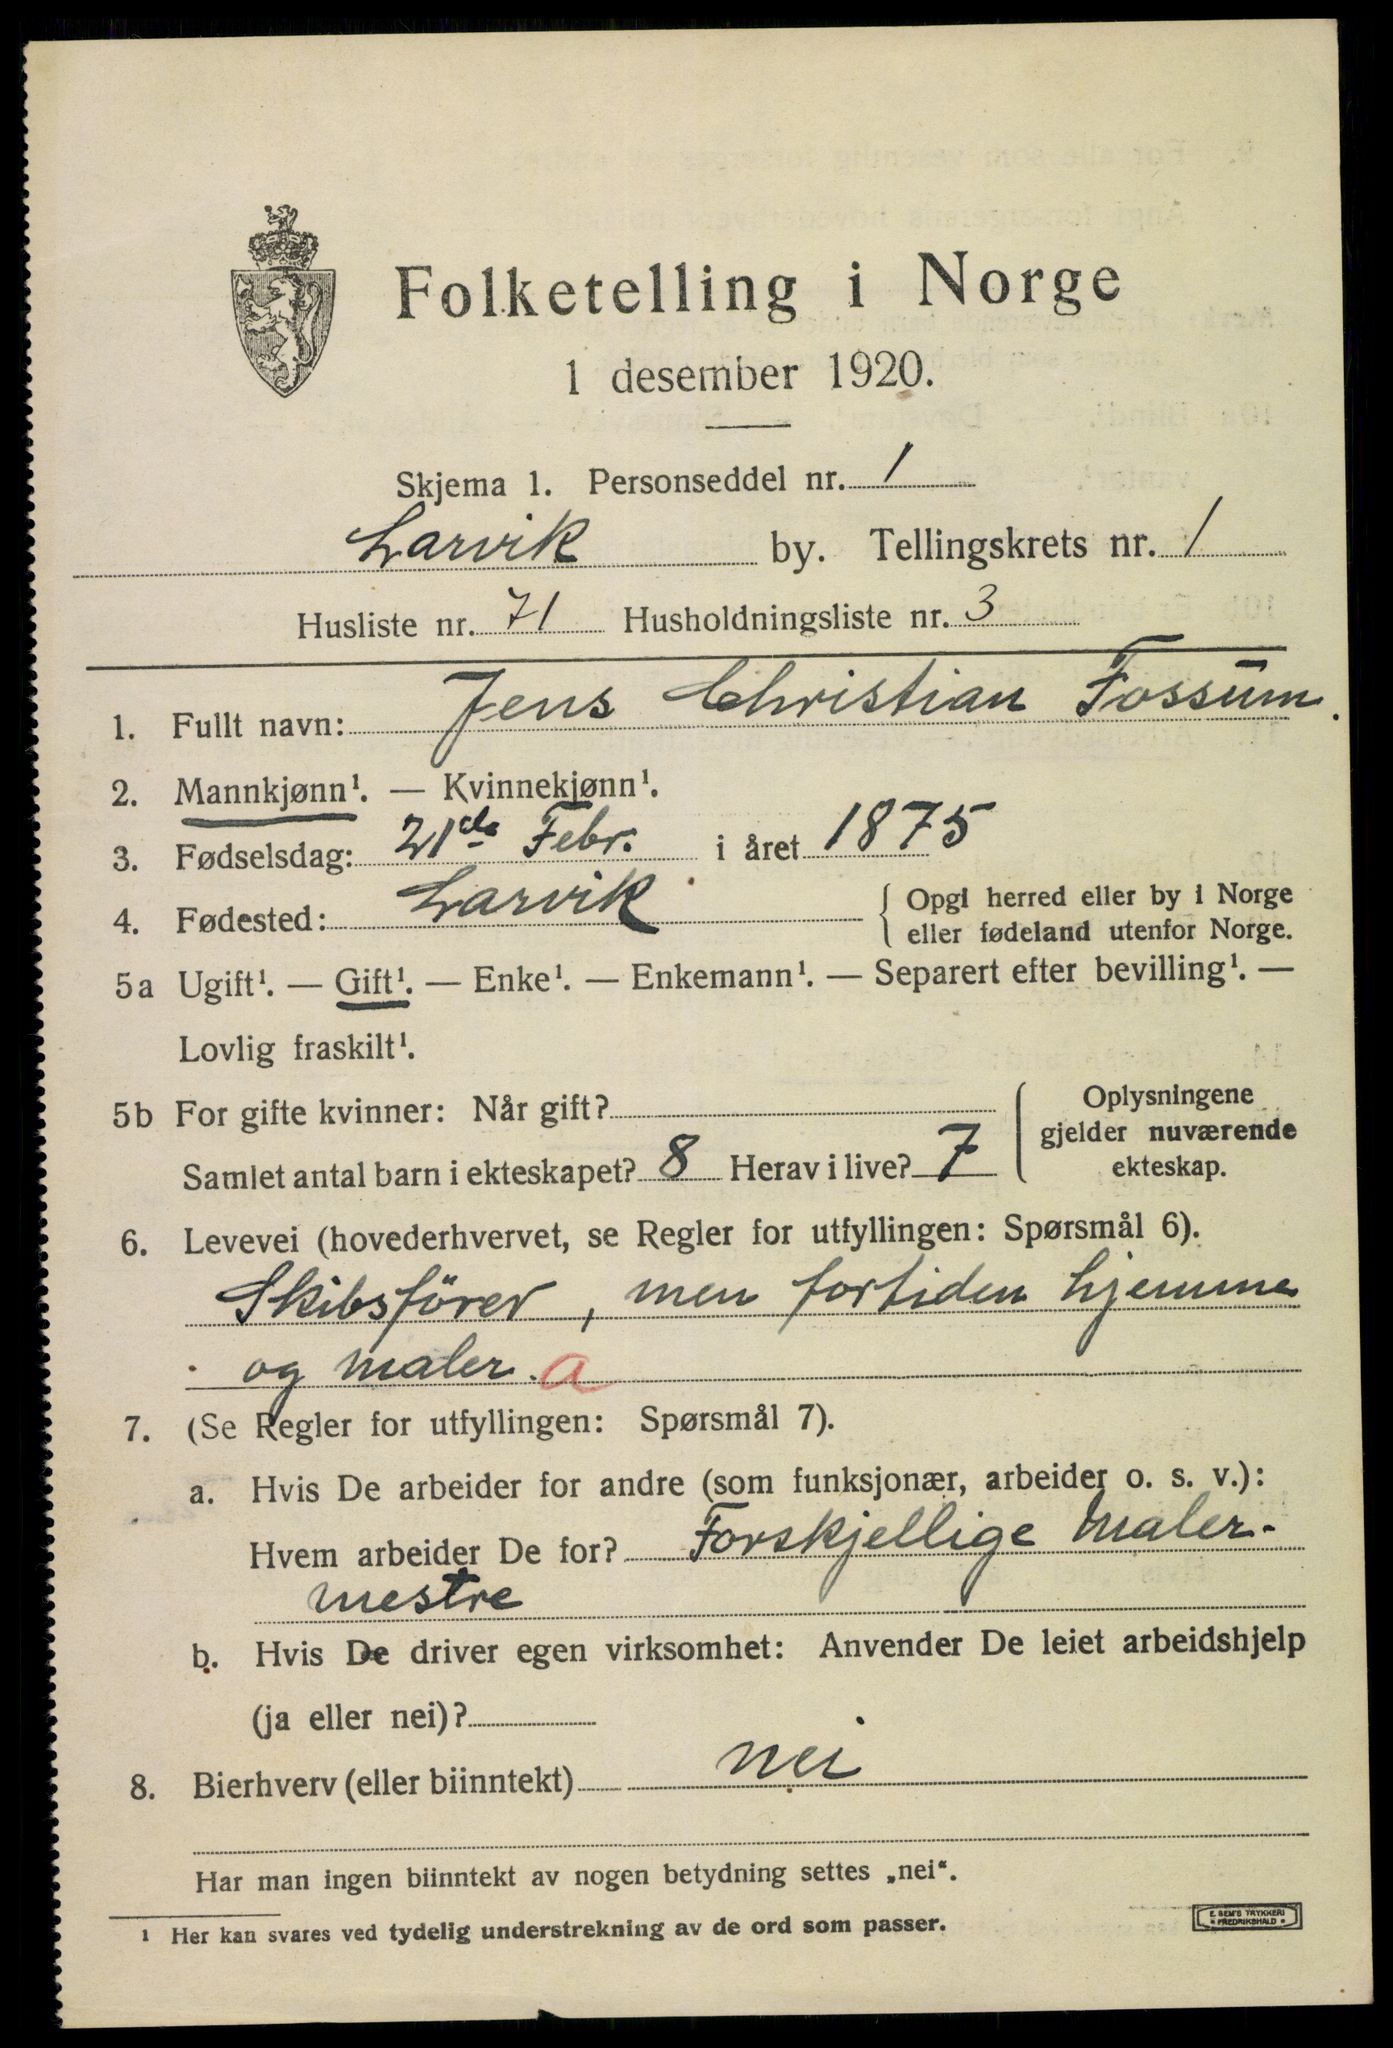 Folketelling i Norge
1 desember 1920.
Skjema 1. Personseddel nr. 1
Larvik by. Tellingskrets nr. 1
Husliste nr. 71 Husholdningsliste nr. 3
1. Fullt navn: Jens Christian Fossum.
2. Mannkjønn¹. — Kvinnekjønn¹.
3. Fødselsdag: 21de Febr. i året 1875
4. Fødested: Larvik { Opgi herred eller by i Norge
eller fødeland utenfor Norge.
5a Ugift¹. — Gift¹. — Enke¹. — Enkemann¹. — Separert efter bevilling¹. —
Lovlig fraskilt¹.
5b For gifte kvinner: Når gift?
Samlet antal barn i ekteskapet? 8 Herav i live? 7
Oplysningene
gjelder nuværende
ekteskap.
6. Levevei (hovederhvervet, se Regler for utfyllingen: Spørsmål 6).
Skibsförer, men fortiden hjemme
og maler. a
7. (Se Regler for utfyllingen: Spørsmål 7).
a. Hvis De arbeider for andre (som funksjonær, arbeider o. s. v.):
Hvem arbeider De for? Forskjellige Maler-
mestre
b. Hvis De driver egen virksomhet: Anvender De leiet arbeidshjelp
(ja eller nei)?
8. Bierhverv (eller biinntekt) nei
Har man ingen biinntekt av nogen betydning settes „nei“.
¹ Her kan svares ved tydelig understrekning av de ord som passer.
E. SEM'S TRYKKERI
* FREDRIKSHALD *